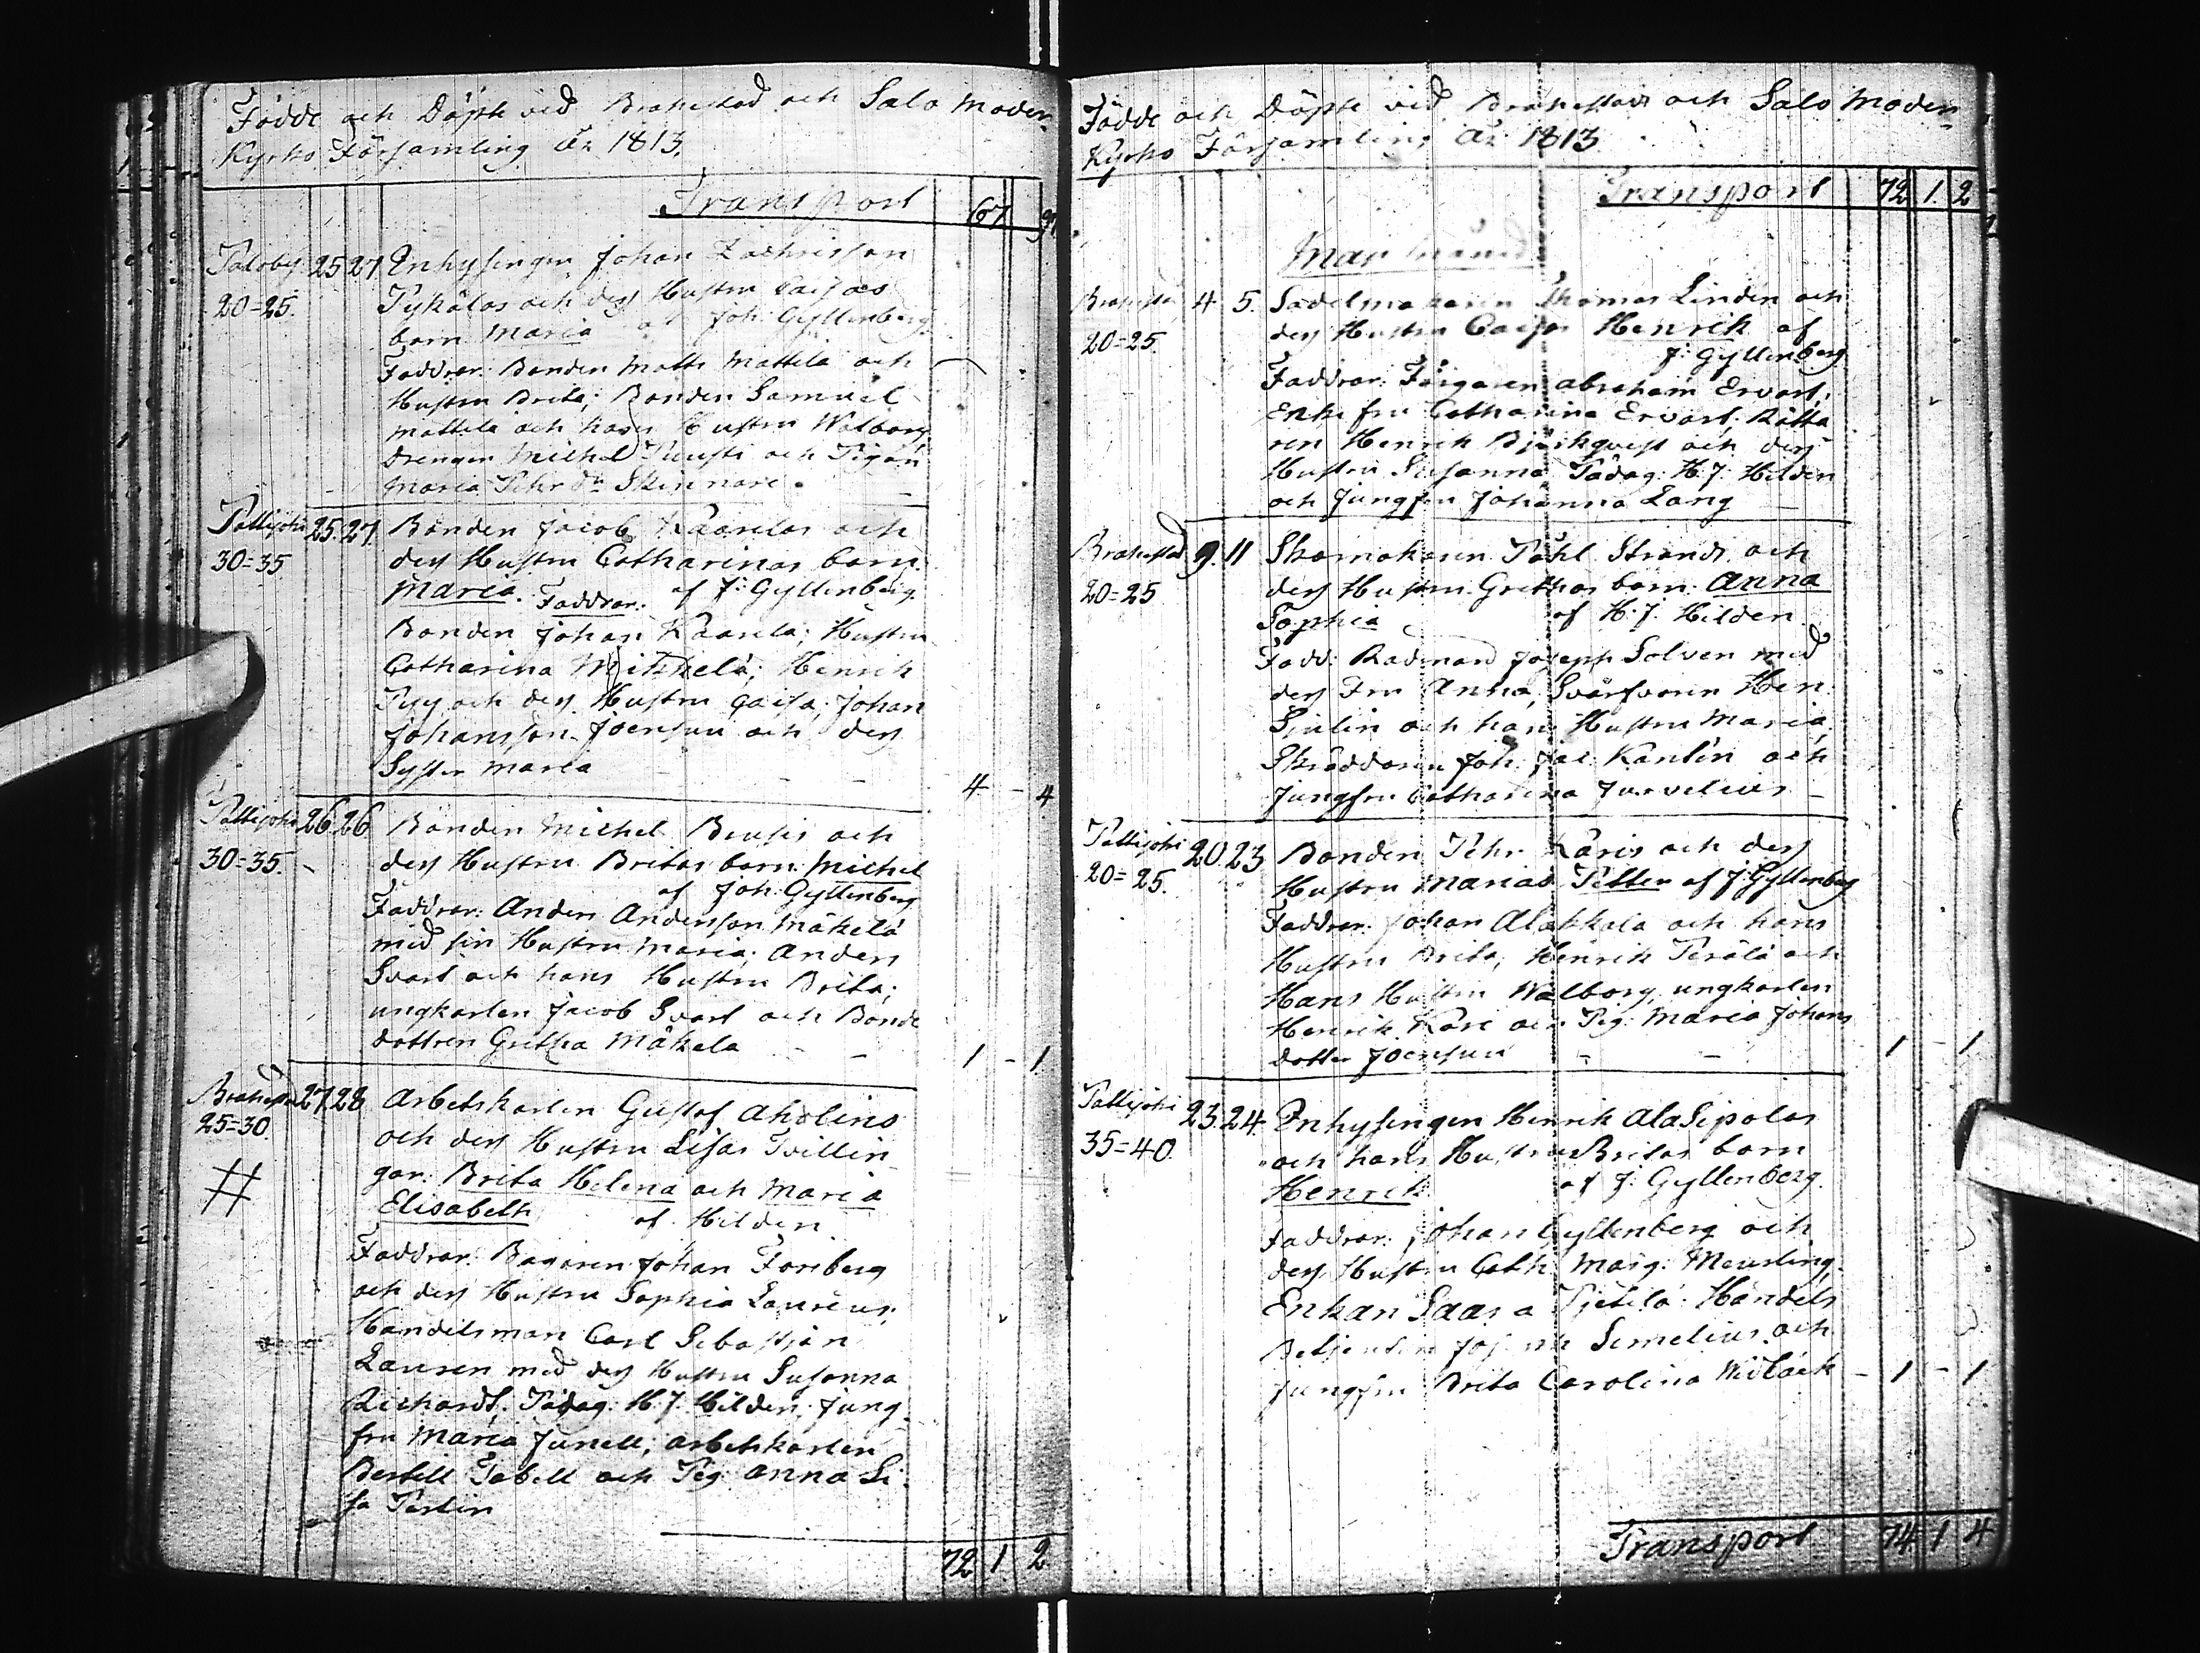 Födde och Döpte vid Brahestad och Salo Moder-
Kyrko Församling År 1813.
Transport 67
Saloby 25 27 Inhysingen Johan Zachrisson
20=25. och dess Hustru Caisas
barn Maria af Joh: Gyllenberg
Faddrar: Bonden Matts Mattila och
Hustru Brita; Bonden Samuel
Mattila och hans Hustru Walborg,
Drengen Michel och Pigan
Maria Pehr dr Skinnari.
Pattijoki 25. 27. Bonden Jacob Kaarelas och
30=35 dess Hustru Catharinas barn
Maria. Faddrar: af J: Gyllenberg.
Bonden Johan Kaarela; Hustru
Catharina Mikkelä; Henrik
Pyy och dess Hustru Caisa; Johan
Johansson Joensuu och dess
Syster Maria - - - 4 - 4
Pattijoki 26 26 Bonden Michel och
30=35. dess Hustru Britas barn Michel
af Joh: Gyllenberg
Faddrar: Anders Andersson Mäkelä
med sin Hustru Maria; Anders
Svart och hans Hustru Brita;
ungkarlen Jacob Svart och Bonde
dottren Gretha Mäkelä - - 1 - 1
Brahestad 27. 28 Arbetskarlen Gustaf Aholins
25=30. och dess Hustru Lisas Tvillin
gar: Brita Helena och Maria
Elisabeth af Hilden
Faddrar: Bagaren Johan Forsberg
och dess Hustru Sophia
Handelsman Carl Sebastjan
Lauren med dess Hustru Susanna
Richardt, Pädag: H: J: Hilden, Jung
fru Maria Junell; arbetskarlen
Bertell Tabell och Pig: Anna Li
sa Perlin
72 1. 2
Födde och Döpte vid Brahestad och Salo Moder-
Kyrko Församling År 1813
Transport 72 1. 2
Maji Månad
Brahestad 4 5. Sadelmakaren Thomas Linden och
20=25. dess Hustru Caisas Henrik af
J: Gyllenberg
Faddrar: Färgaren Abraham Ervast;
Enkefru Catharina Ervast;
Henrik Björkqvist och dess
Hustru Susanna Pädag: H: J: Hilden
och Jungfru Johanna Lang
Brahestad 9. 11 Skomakaren Påhl Strands och
20=25 dess Hustru Grethas barn Anna
Sophia af H: J: Hilden
Fadd: Rådman Joseph Solven med
dess Fru Anna, Svarfvaren Hen:
Sjulin och hans Hustru Maria,
Skräddaren Joh: Jac: Kantin och
Jungfru Catharina Jurvelius -
Pattijoki 20. 23 Bonden Pehr Käris och dess
20=25. Hustru Marias Petter af J: Gyllenberg
Faddrar: Johan Alakkala och hans
Hustru Brita; Henrik Perälä och
Hans Hustru Walborg, ungkarlen
Henrik Kåre och Pig: Maria Johans
dotter Joensuu - - 1 - 1
Pattijoki 23. 24. Inhysingen Henrik AlaSipolas
35=40. och hans Hustru Britas barn
Henrik af J: Gyllenberg.
Faddrar: Johan Gyllenberg och
dess Hustru Cath: Marg: Meurling.
Enkan Saara Pjetilä: Handels
Betjenten Simelius och
Jungfru Brita Carolina Widbäck - 1 - 1
Transport 74 1 4